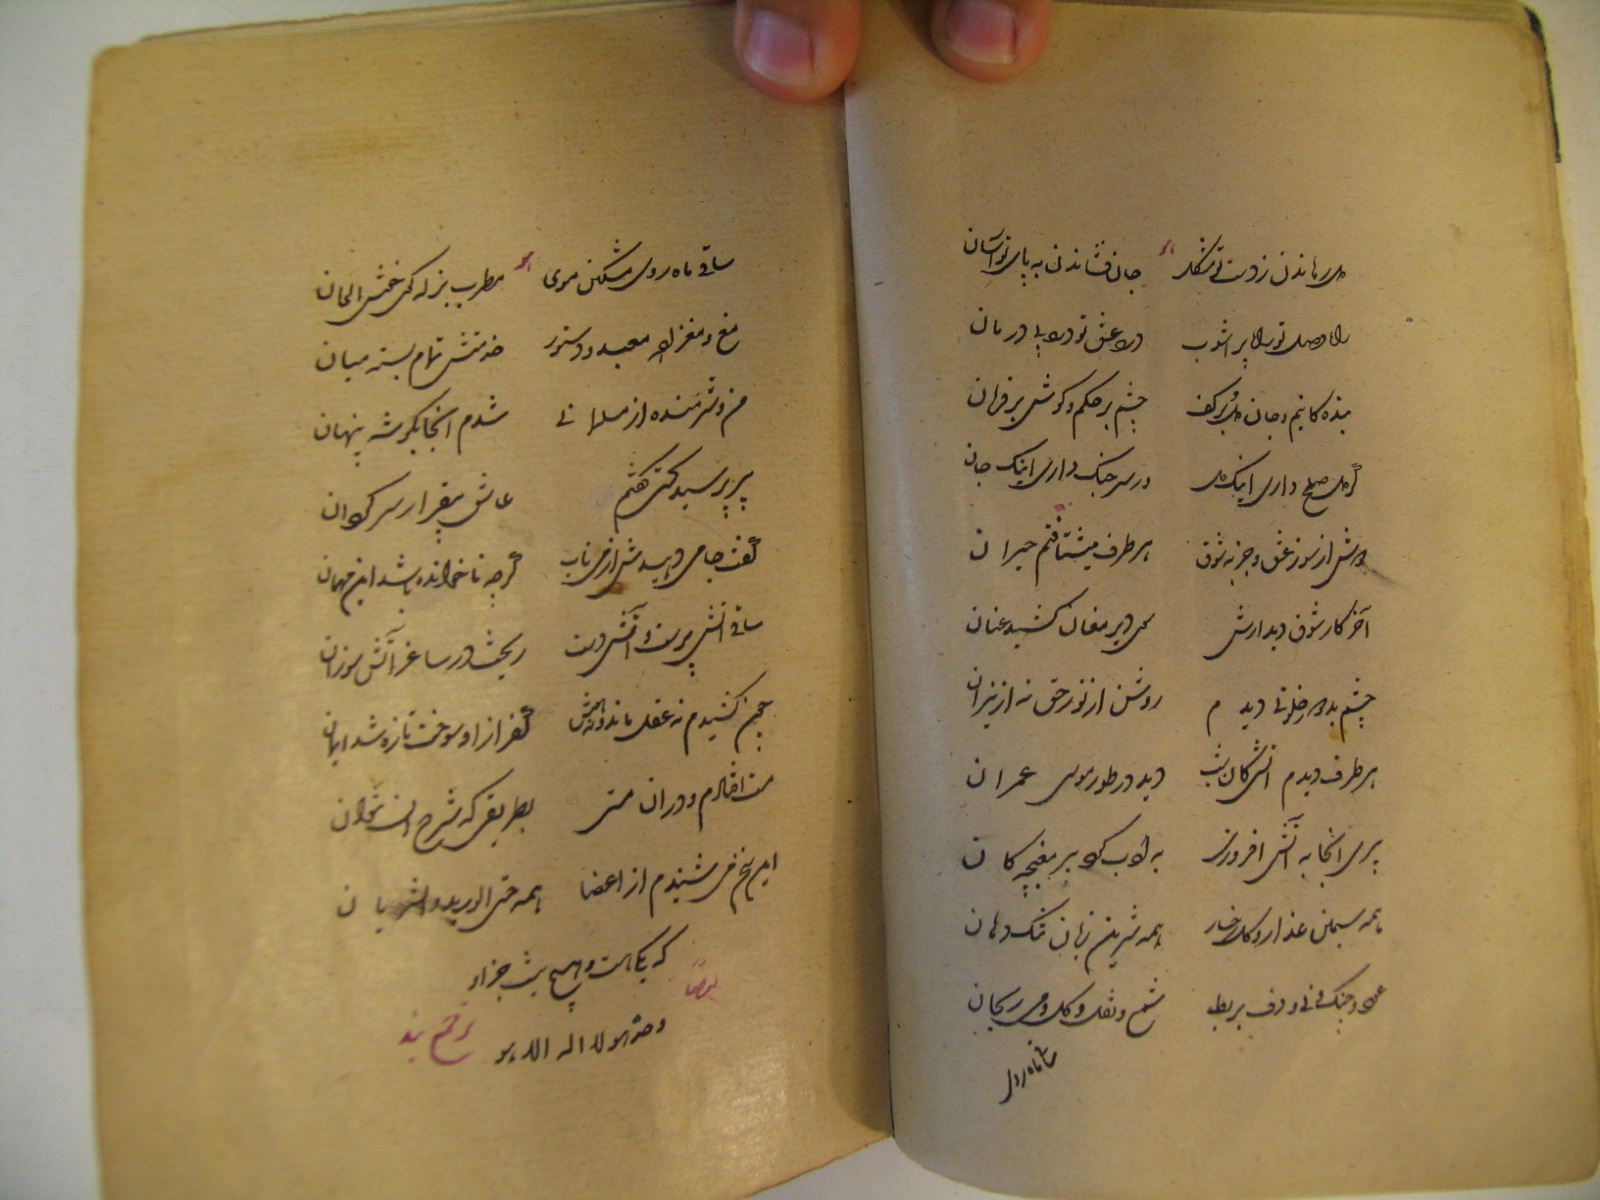 دل رهاندن ز دست تو مشکل جان فشاندن به پای تو آسان
راه وصل تو راه پر اشوب درد عشق تو درد بی درمان
بنده کانیم و جان و دل بر کف چشم بر حکم و گوش بر فرمان
گر دل صلح داری اینک دل ور سر جنگ داری اینک جان
دوش از سوز عشق و جذبه شوق هر طرف میشتافتم حیران
آخر کار شوق دیدارش سوی دیر مغان کشید عنان
چشم بد دور خلوتی دیدم روشن از نور حق نه از نیران
هر طرف دیدم آتشی کان شب دید در طور موسی عمران
پیری آنجا به آتش افروزی به ادب گرد پیر مغبچه کان
همه سیمین عذار و گل رخسار همه شیرین زبان تنگ دهان
عود و چنگ و نی و دف بربط شمع و نقل و گل و می ریحان
ساقی ماه روی
ساقی ماه روی مشکین موی مطرب بزله گوی خوش الحان
مغ و مغزاده موبد و دستور خدمتش تمام بسته میان
من شرمنده از مسلمانی شدم آنجا بگوشه پنهان
پیر پرسید کیست گفتم عاشق بیقرار سرگردان
گفت جامی دهیدش از می ناب گرچه ناخوانده باشد این مهمان
ساقی آتش پرست و آتش دست ریخت در ساغر آتش سوزان
چون کشیدم نه عقل ماند و نه هوش کفر از او سوخت تا زو شد ایمان
مست افتادم و در آن مستی بطریقی که شرح آن نتوان
این سخن می شنیدم از اعضا همه حتی الورید و الشریان
که یکی هست و هیچ نیست جز او
وحده هو لا اله الا هو